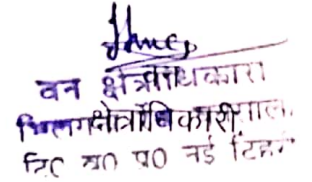 वन क्षेत्राधिकारी
भिलंगक्षेत्राधिकारी
टि0 व0 प्र0 नई टिहरी